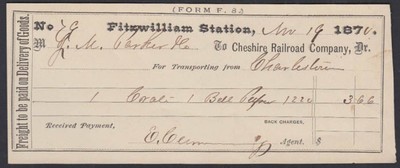 (FORM F. 8.)
No 79 Fitzwilliam Station, Nov 19 1870.
M J. M. Parker & Co To Cheshire Railroad Company, Dr.
For Transporting from Charlestown
1 1 Bdl Paper 1220 3.66
BACK CHARGES,
Received Payment,
Agent. $
Freight to be paid on Delivery of Goods.